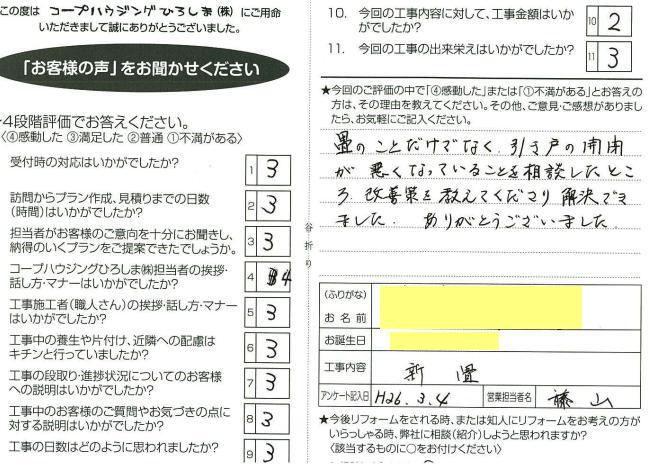 この度は コープハウジングひろしま(株) にご用命
いただきまして誠にありがとうございました。
「お客様の声」をお聞かせください
4段階評価でお答えください。
〈④感動した ③満足した ②普通 ①不満がある〉
受付時の対応はいかがでしたか?
1 3
訪問からプラン作成、見積りまでの日数
(時間)はいかがでしたか?
2 3
担当者がお客様のご意向を十分にお聞きし、
納得のいくプランをご提案できたでしょうか。
3 3
コープハウジングひろしま㈱担当者の挨拶・
話し方・マナーはいかがでしたか?
4 4
工事施工者(職人さん)の挨拶・話し方・マナー
はいかがでしたか?
5 3
工事中の養生や片付け、近隣への配慮は
キチンと行っていましたか?
6 3
工事の段取り・進捗状況についてのお客様
への説明はいかがでしたか?
7 3
工事中のお客様のご質問やお気づきの点に
対する説明はいかがでしたか?
8 3
工事の日数はどのように思われましたか?
9 3
谷折り
10. 今回の工事内容に対して、工事金額はいか
がでしたか?
10 2
11. 今回の工事の出来栄えはいかがでしたか?
11 3
★今回のご評価の中で「④感動した」または「①不満がある」とお答えの
方は、その理由を教えてください。その他、ご意見・ご感想がありまし
たら、お気軽にご記入ください。
畳のことだけでなく、引き戸の開閉
が悪くなっていることを相談したとこ
ろ、改善策を教えてくださり解決でき
ました。ありがとうございました。
(ふりがな)
お名前
お誕生日
工事内容
新畳
アンケート記入日 H26.3.4 営業担当者名 藤山
★今後リフォームをされる時、または知人にリフォームをお考えの方が
いらっしゃる時、弊社に相談(紹介)しようと思われますか?
〈該当するものに○をお付けください〉